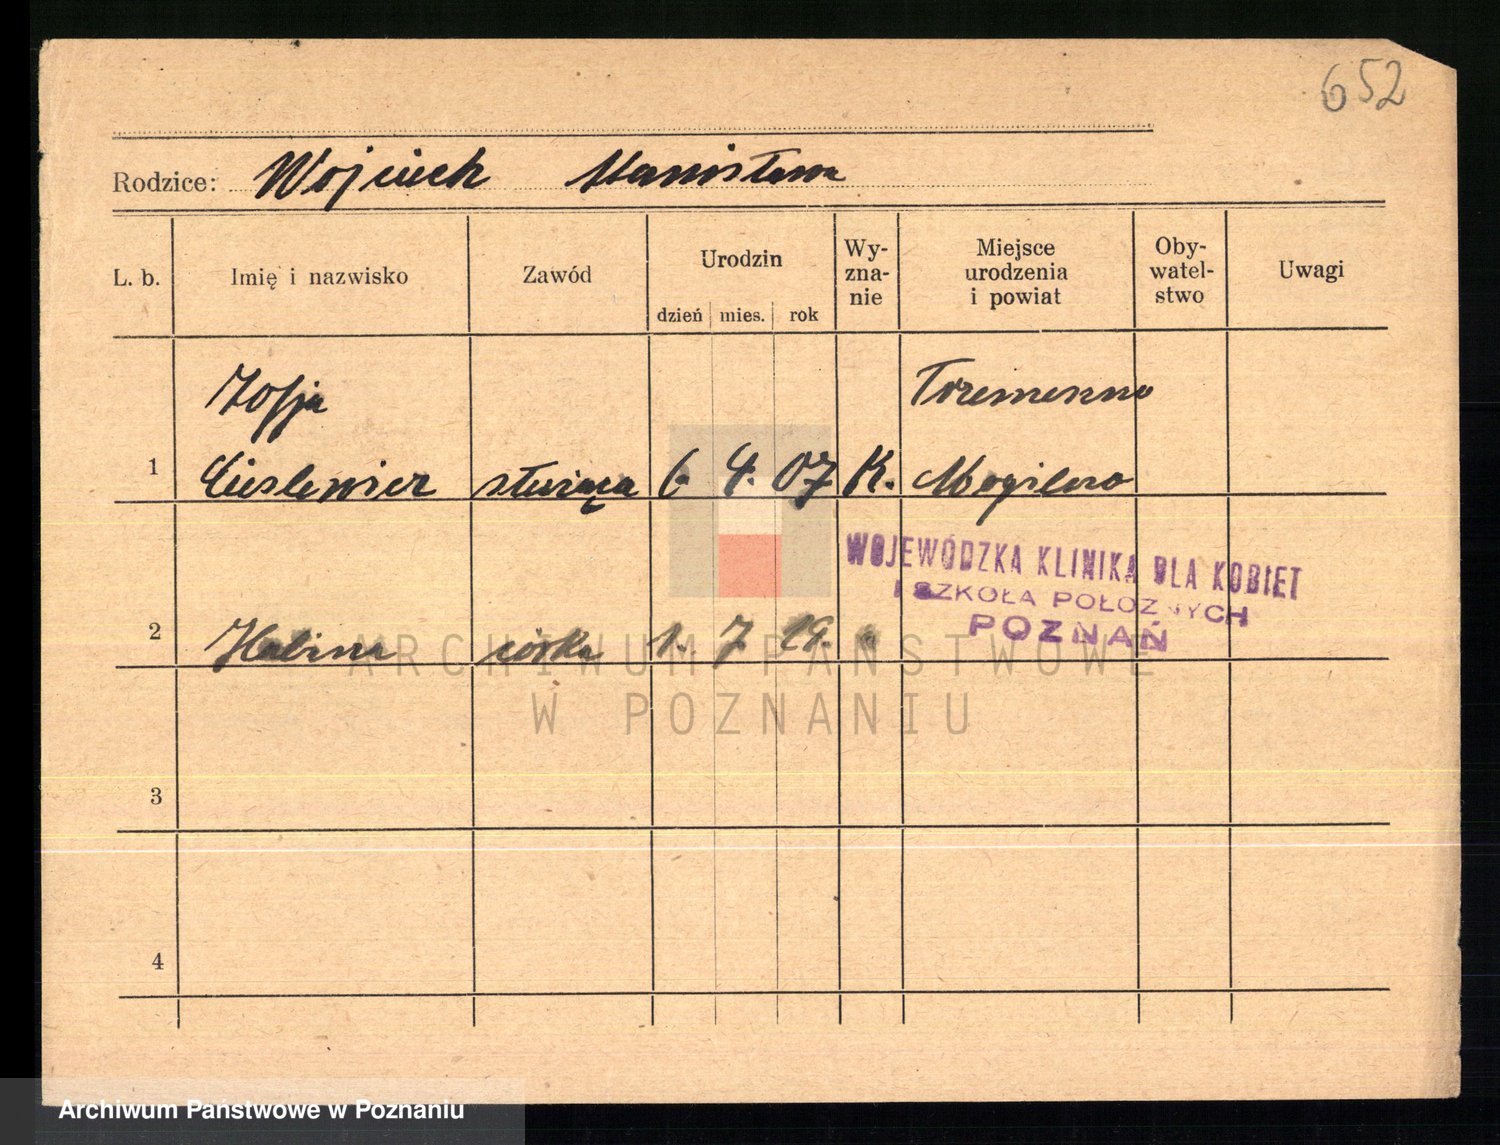 652
Rodzice: Wojciech Stanisława
L. b.
Imię i nazwisko
Zawód
Urodzin
dzień mies. rok
Wy-
zna-
nie
Miejsce
urodzenia
i powiat
Oby-
watel-
stwo
Uwagi
Zofja Trzemeszno
1 Cieslewicz służąca 6. 4. 07 K. Mogilno
WOJEWÓDZKA KLINIKA DLA KOBIET
I SZKOŁA POŁOŻNYCH
POZNAŃ
2 Halina córka 1. 7. 29.
ARCHIWUM PAŃSTWOWE
W POZNANIU
3
4
Archiwum Państwowe w Poznaniu